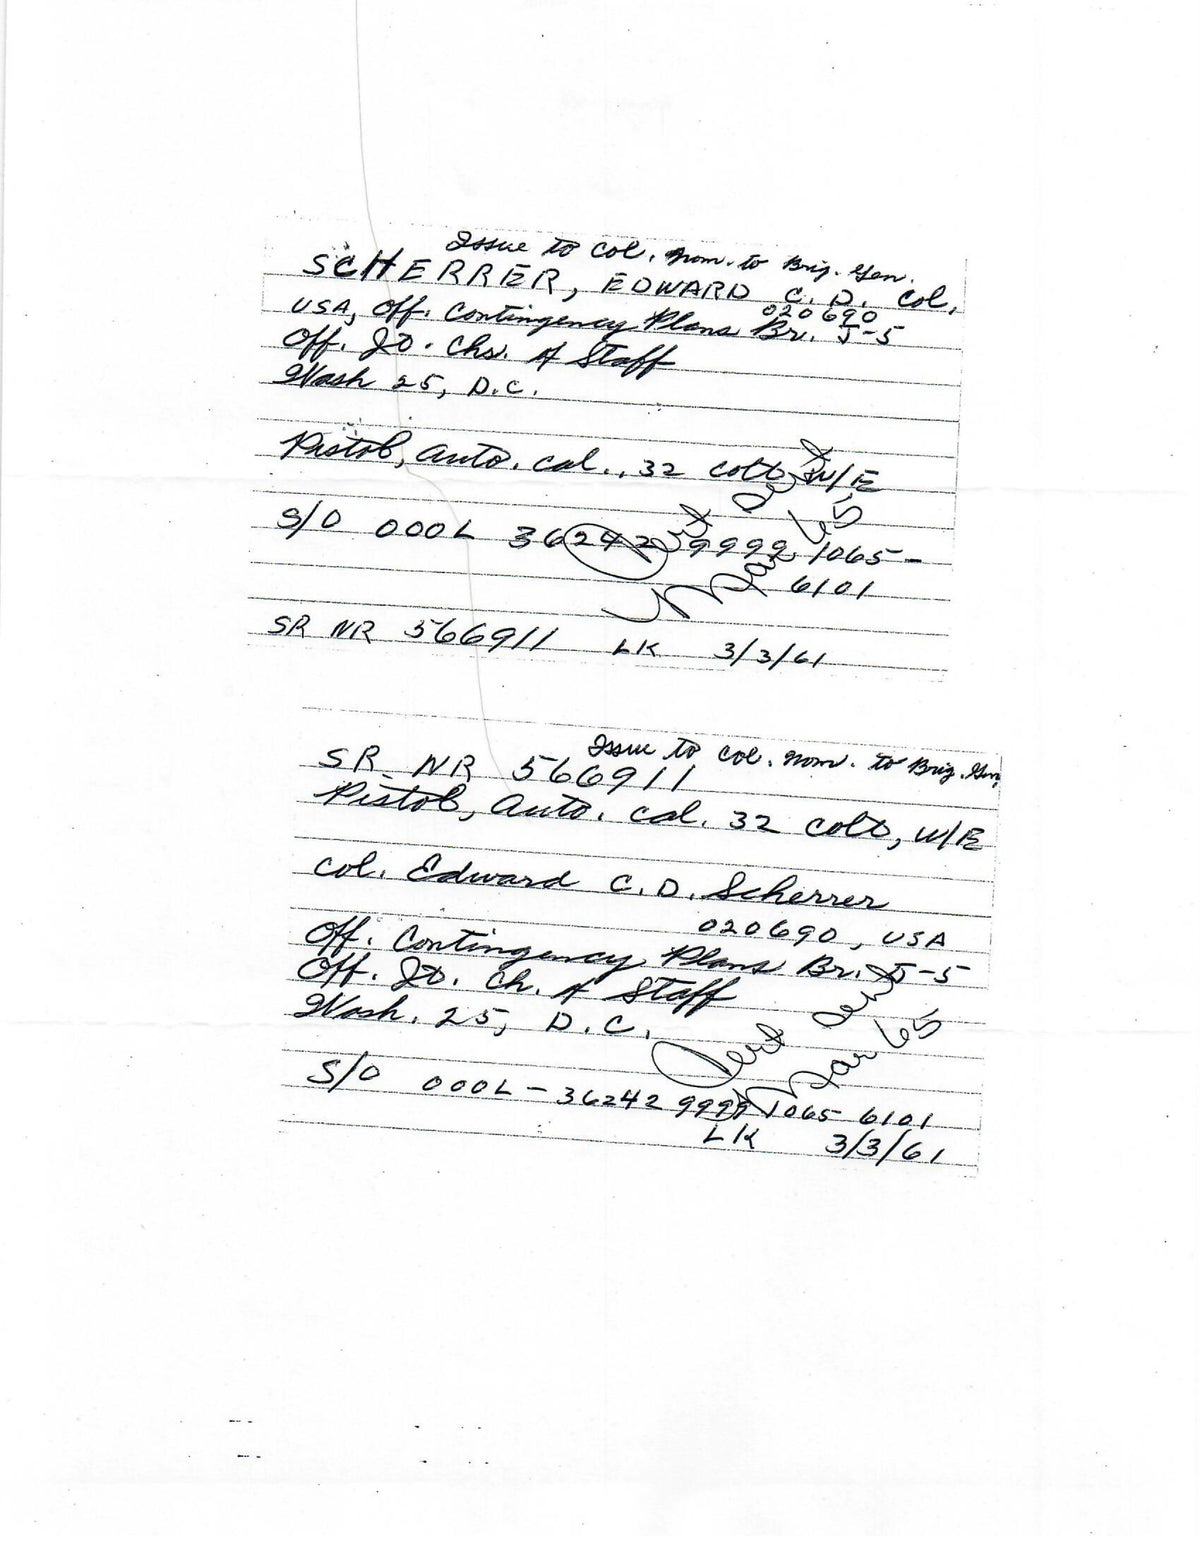 Issue to Col. nom. to Brig. Gen.
SCHERRER, EDWARD C. D. Col.
020690
USA, Off. Contingency Plans Br. J-5
Off. Jt. Chs. of Staff
Wash 25, D.C.
Pistol, Auto. Cal. .32 Colt W/E
S/O 000L 36242 9999 1065-
6101
Cert Dest
Mar 65
SR NR 566911 LK 3/3/61
Issue to Col. nom. to Brig. Gen.
SR NR 566911
Pistol, Auto. Cal. 32 Colt, W/E
Col. Edward C. D. Scherrer
020690, USA
Off. Contingency Plans Br. J-5
Off. Jt. Ch. of Staff
Wash. 25, D.C.
Cert Dest
Mar 65
S/O 000L-36242 9999 1065 6101
LK 3/3/61